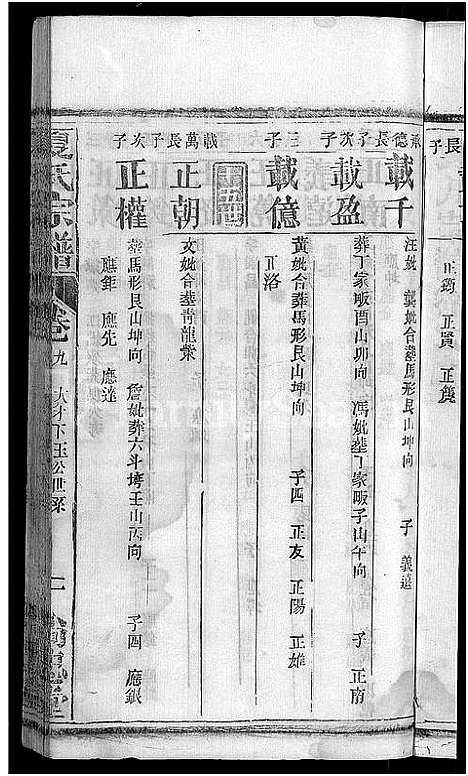 長子
正鈞 正賢 正筬
承德長子
載千
汪妣 龔妣合葬馬形艮山坤向 子 義達
次子
載盈
葬丁家畈酉山卯向 馮妣葬丁家畈子山午向 子 正南
三子
載億
黃妣合葬馬形艮山坤向 子四 正友 正陽 正雄
正洛
載萬長子
正朝
文妣合葬靑龍檠
次子
正權
葬馬形艮山坤向 詹妣葬六斗塆壬山丙向 子四 應銀
應鉅 應先 應達
夏氏宗譜
卷九 大分下玉公世系 二